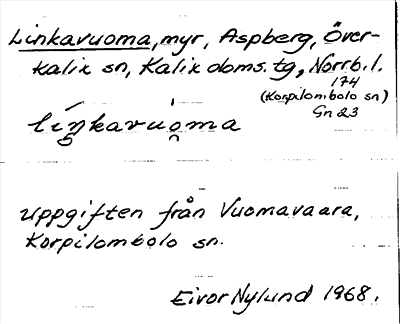 Linkavuoma, myr, Aspberg, Över-
kalix sn, Kalix doms. tg, Norrb. l.
174
(Korpilombolo sn)
Gn 23
liŋkavuoma
uppgiften från Vuomavaara,
Korpilombolo sn.
Eivor Nylund 1968.